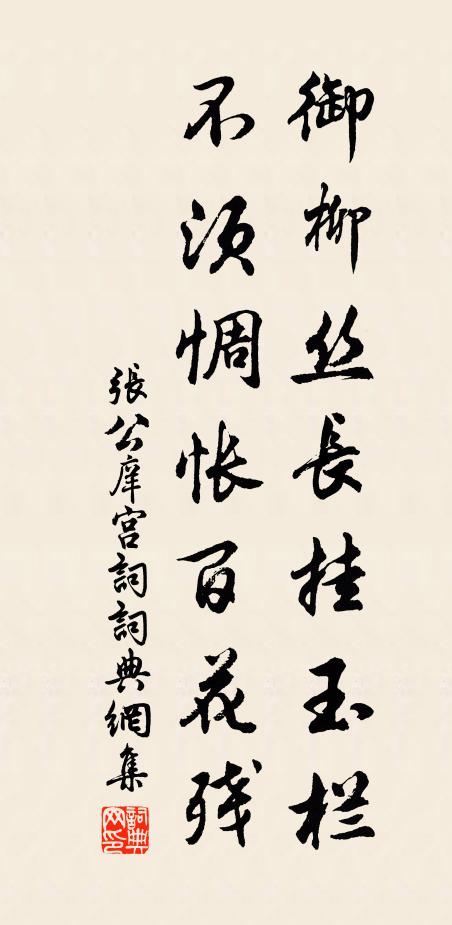 御柳丝長挂玉栏
不须惆怅百花残
張公庠宫詞詞典網集
詞典網印